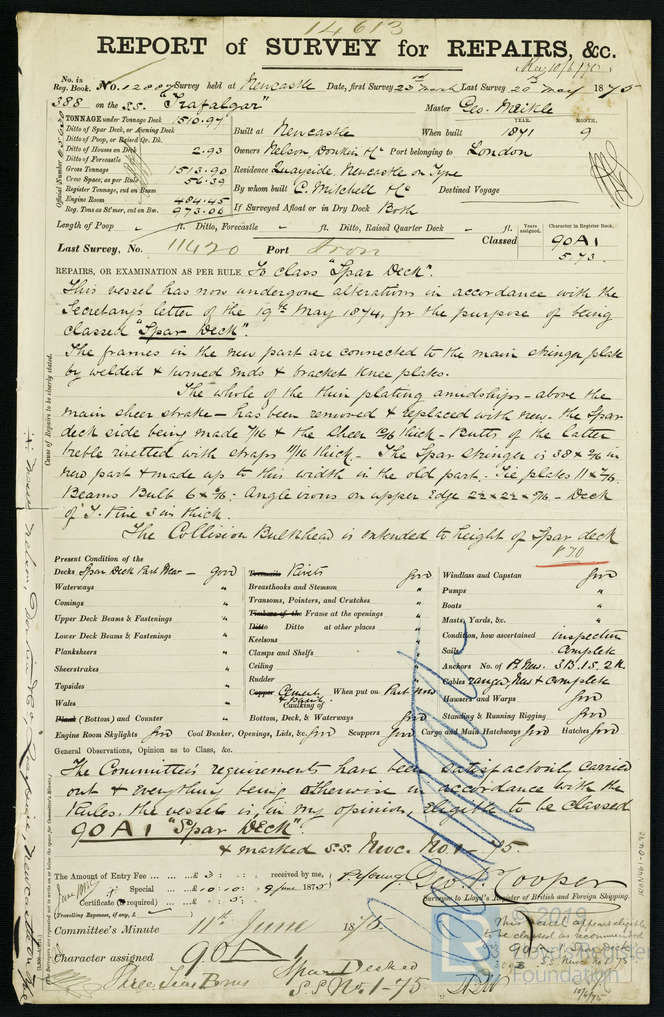 14613
REPORT of SURVEY for REPAIRS, &c.
May 10/6/75
No. in Reg. Book. No. 12087 Survey held at Newcastle Date, first Survey 23rd March Last Survey 20th May 1875
388 on the S.S. "Trafalgar" Master Geo. Meikle
TONNAGE under Tonnage Deck 1510.97
Ditto of Spar Deck, or Awning Deck
Ditto of Poop, or Raised Qr. Dk.
Ditto of Houses on Deck 2.93
Ditto of Forecastle
Gross Tonnage 1513.90
Crew Space, as per Rule 56.39
Register Tonnage, cut on Beam
Engine Room 484.45
Reg. Tons as St'mer, cut on Bm. 973.06
Official Number
YEAR. MONTH.
Built at Newcastle When built 1871 9
Owners Nelson Donkin & Co Port belonging to London
Residence Quayside, Newcastle on Tyne
By whom built C. Mitchell & Co Destined Voyage
If Surveyed Afloat or in Dry Dock Both
Length of Poop ft. Ditto, Forecastle ft. Ditto, Raised Quarter Deck ft.
Years assigned. Character in Register Book.
Last Survey, No. 11420 Port Iron Classed 90A1
5.73.
REPAIRS, OR EXAMINATION AS PER RULE To class "Spar Deck".
This vessel has now undergone alterations in accordance with the
Secretarys letter of the 19th May 1874, for the purpose of being
classed "Spar Deck".
The frames in the new part are connected to the main stringer plate
by welded & turned ends & bracket knee plates.
The whole of the thin plating amidships - above the
main sheer strake - has been removed & replaced with new - the Spar
deck side being made 7/16 & the Sheer thick - Butts of the latter
treble rivetted with straps 11/16 thick. - The Spar stringer is 38 x
new part & made up to this width in the old part. Tie plates 11 x 7/16
Beams Bulb 6 x : Angle irons on upper Edge 2½ x 2½ x - Deck
of Y. Pine 3 in thick.
The Collision Bulkhead is extended to height of Spar deck
Cause of Repairs to be clearly stated.
Present Condition of the
Decks Spar Deck Part New - good
Waterways "
Comings "
Upper Deck Beams & Fastenings "
Lower Deck Beams & Fastenings "
Planksheers "
Sheerstrakes "
Topsides "
Wales "
Plank (Bottom) and Counter "
Engine Room Skylights good Coal Bunker, Openings, Lids, &c. good Scuppers good Cargo and Main Hatchways good Hatches good
Treenails Rivets good
Breasthooks and Stemson "
Transoms, Pointers, and Crutches "
Timbers of the Frame at the openings "
Ditto Ditto at other places "
Keelsons "
Clamps and Shelfs "
Ceiling "
Rudder "
Copper Cement & Paint When put on Part new
Caulking of
Bottom, Deck, & Waterways good
Windlass and Capstan good
Pumps "
Boats "
Masts, Yards, &c. "
Condition, how ascertained inspection
Sails Complete
Anchors No. of 3B. 1S. 2K
Cables ranged, New & complete
Hawsers and Warps good
Standing & Running Rigging good
General Observations, Opinion as to Class, &c.
The Committee's requirements have been satisfactorily carried
out & everything being otherwise in accordance with the
Rules, the vessel is, in my opinion, eligible to be classed
90A1 "Spar Deck".
& marked S.S. Nwc. No. 1 - 75
The Amount of Entry Fee ... £ : : received by me,
Special ... £ 10 : 10 : 9 June 1875
Certificate (if required) .. £ : 5 :
(Travelling Expenses, if any, £ )
Geo. P. Cooper
Surveyor to Lloyd's Register of British and Foreign Shipping.
Committee's Minute 11th June 1875
Character assigned 90A1
Spar Decked
S.S. No. 1-75
This vessel appears eligible
to be classed as recommended
90A1 Spar Deck
S.S. Nwc No 1 - 75
10/6/75
© 2019
Lloyd's Register
Foundation